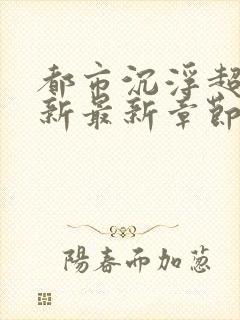 都市沉浮超
新最新章節
陽春而加蔥